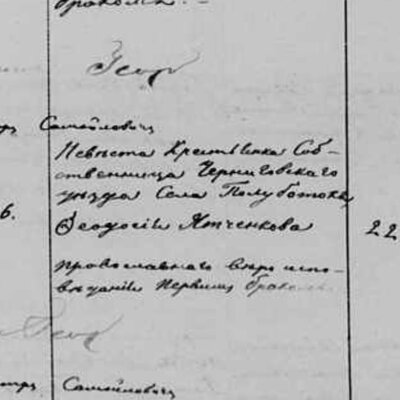 бракомъ.
Самойловичъ
Невѣста Крестьянка Соб-
ственница Черниговскаго
уѣзда Села Полуботокъ
6. Ѳеодосія Ятченкова 22
православнаго вѣро испо-
вѣданія первымъ бракомъ
Самойловичъ